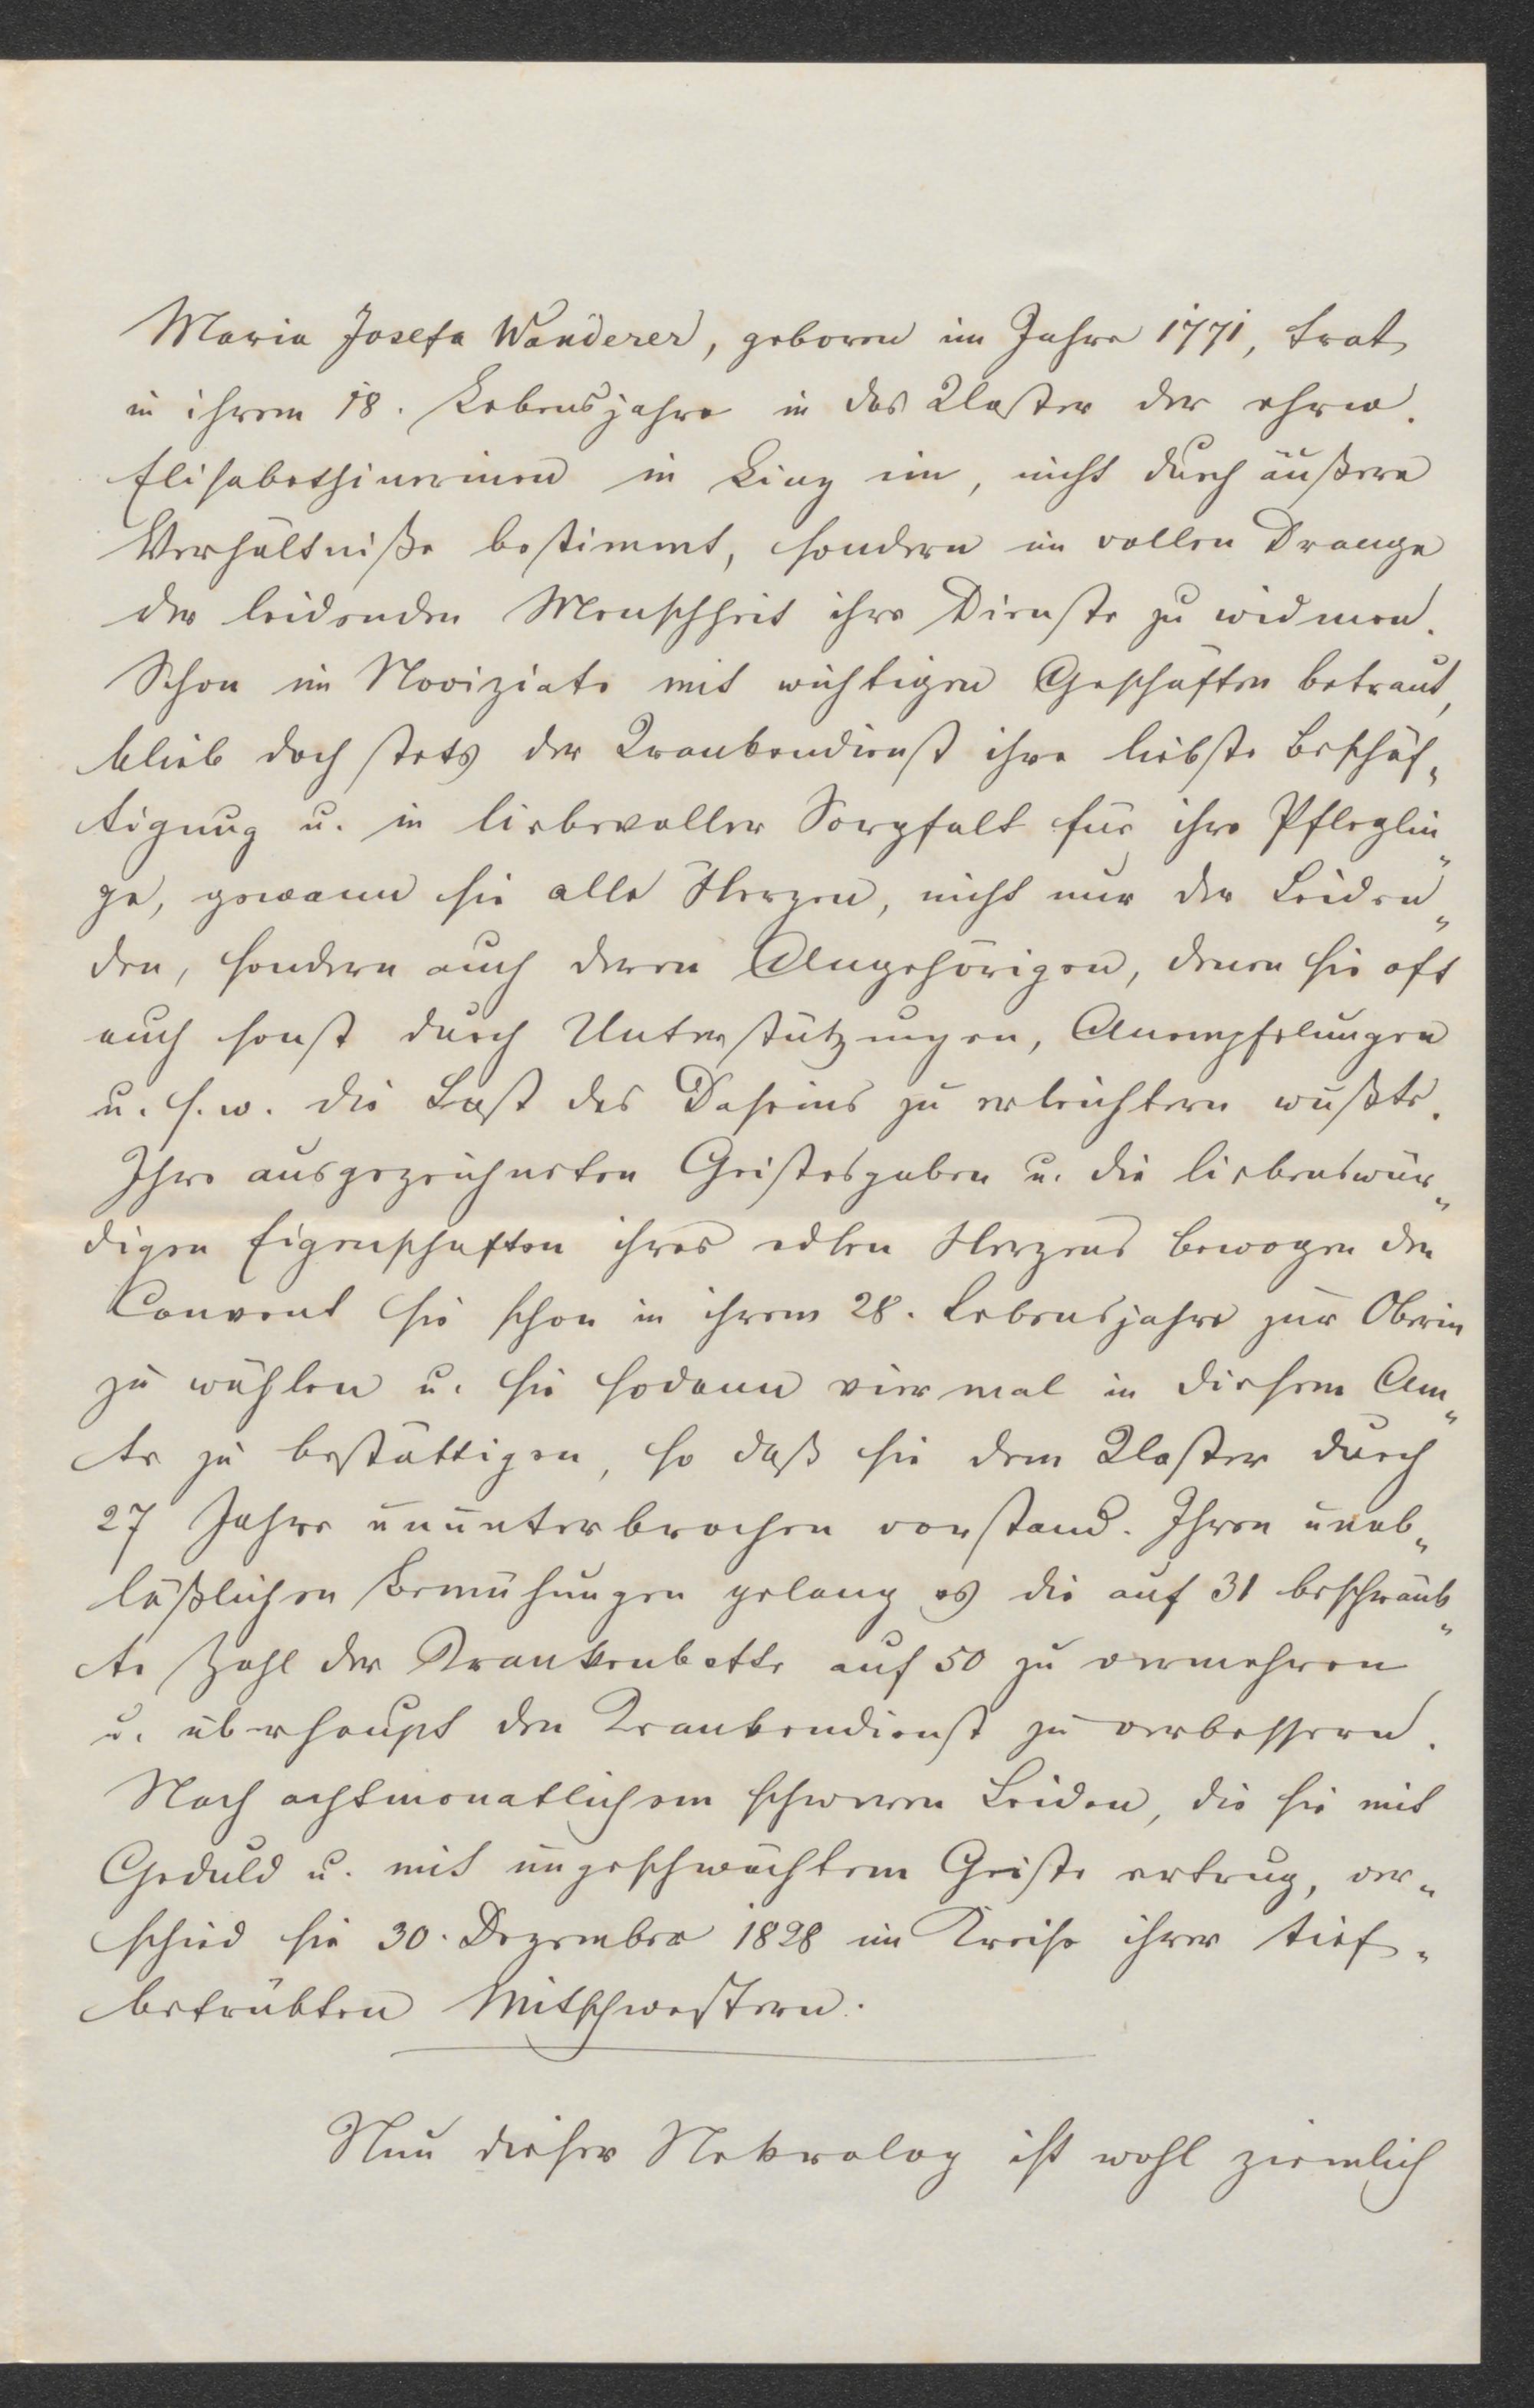 Maria Josefa Wanderer, geboren im Jahre 1771, trat
in ihrem 18. Lebensjahre in das Kloster der ehrw.
Elisabethinerinen in Linz ein, nicht durch äußere
Verhältniße bestimmt, sondern im vollen Drange
der leidenden Menschheit ihre Dienste zu widmen.
Schon im Noviziate mit wichtigen Geschäften betraut,
blieb doch stets der Krankendienst ihre liebste Beschäf„
tigung u. in liebevoller Sorgfalt für ihre Pfleglin„
ge, gewann sie alle Herzen, nicht nur der Leiden„
den, sondern auch deren Angehörigen, denen sie oft
auch sonst durch Unterstützungen, Anempfelungen
u. s. w. die Last des Daseins zu erleichtern wußte.
Ihre ausgezeichneten Geistesgaben u. die liebenswür„
digen Eigenschaften ihres edlen Herzens bewogen den
Convent sie schon in ihrem 28. Lebensjahre zur Oberin
zu wählen u. sie sodann viermal in diesem Am„
te zu bestättigen, so daß sie dem Kloster durch
27 Jahre ununterbrochen vorstand. Ihren unab„
läßlichen Bemühungen gelang es die auf 31 beschränk„
te Zahl der Krankenbette auf 50 zu vermehren
u. überhaupt den Krankendienst zu verbessern.
Nach achtmonatlichem schweren Leiden, die sie mit
Geduld u. mit ungeschwächtem Geiste ertrug, ver„
schied sie 30. Dezember 1828 im Kreise ihrer tief„
betrübten Mitschwestern.
Nun dieser Nekrolog ist wohl ziemlich